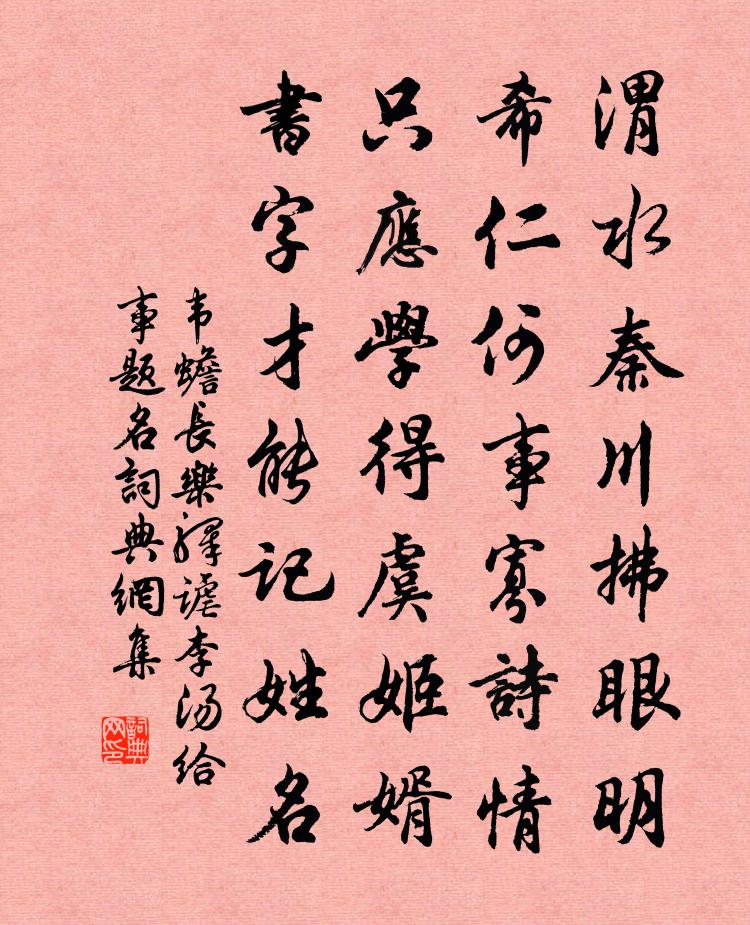 渭水秦川拂眼明
希仁何事寡詩情
只應學得虞姬婿
書字才能記姓名
韦蟾長樂驛謔李汤给
事题名詞典網集
詞典
网印